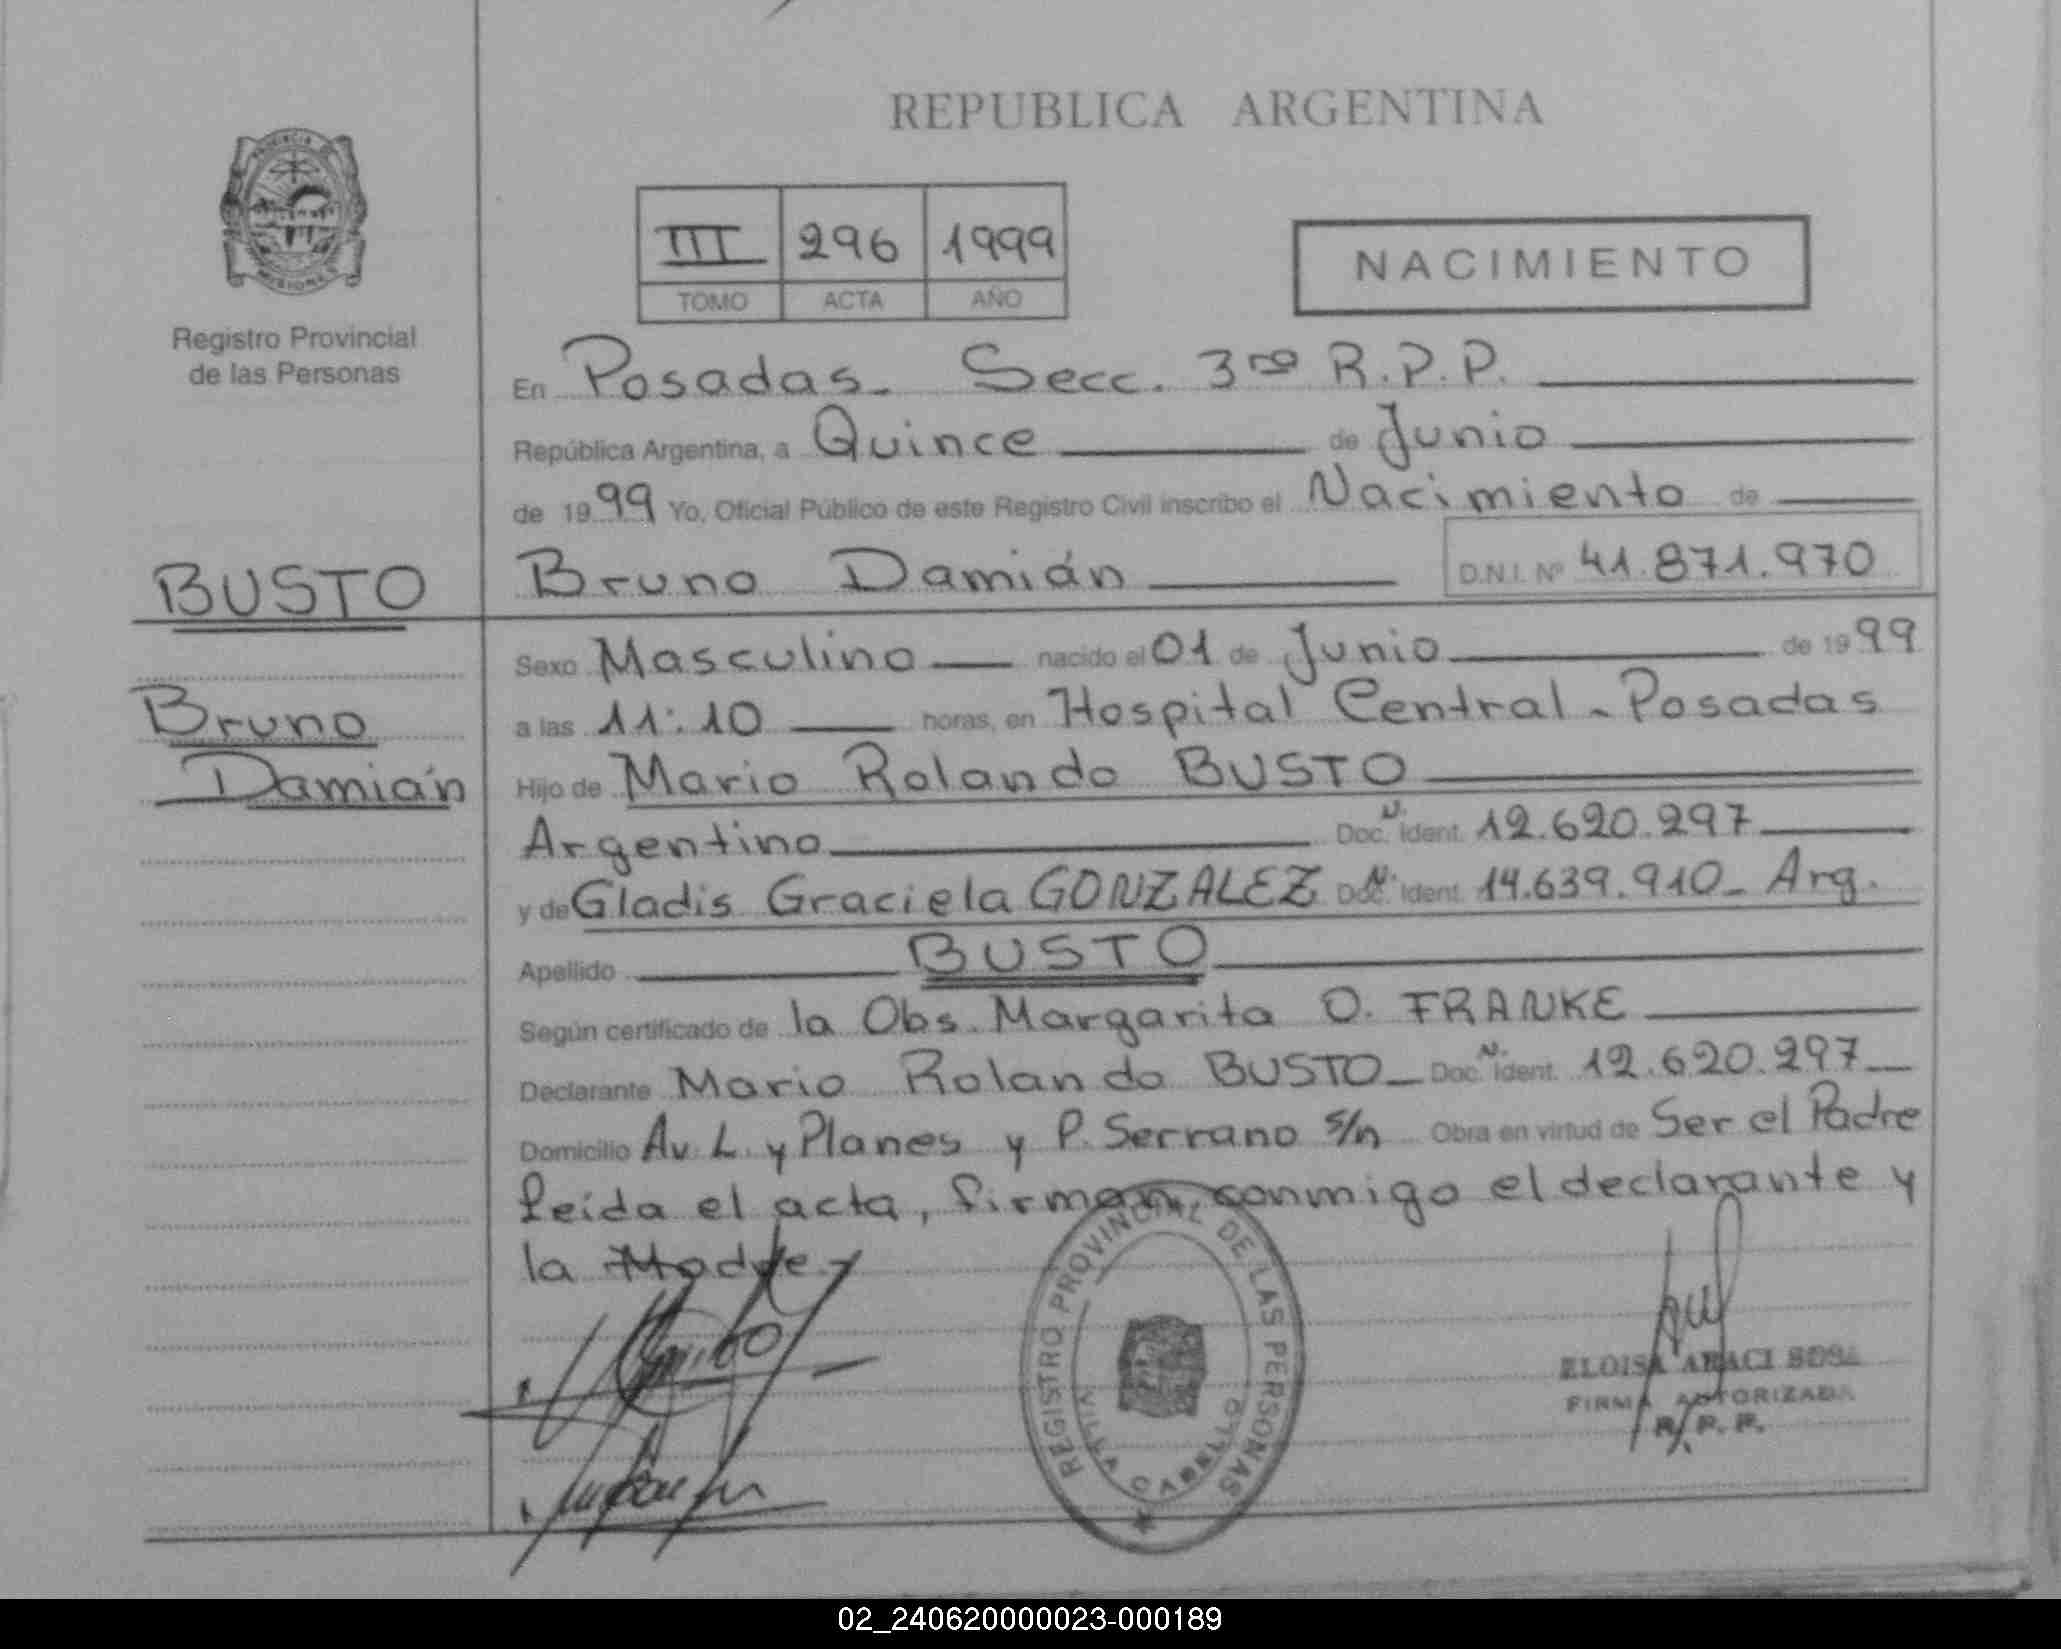 REPUBLICA ARGENTINA
PROVINCIA DE
MISIONES
Registro Provincial
de las Personas
III 296 1999
TOMO ACTA AÑO
NACIMIENTO
En Posadas. Secc. 3ra R.P.P.
República Argentina, a Quince de Junio
de 1999 Yo, Oficial Público de este Registro Civil inscribo el Nacimiento de
BUSTO
Bruno
Damián
Bruno Damián D.N.I. Nº 41.871.970
Sexo Masculino nacido el 01 de Junio de 1999
a las 11:10 horas, en Hospital Central - Posadas
Hijo de Mario Rolando BUSTO
Argentino Doc. N. Ident. 12.620.297
y de Gladis Graciela GONZALEZ Doc. N. Ident. 14.639.910_ Arg.
Apellido BUSTO
Según certificado de la Obs. Margarita O. FRANKE
Declarante Mario Rolando BUSTO_ Doc. N. Ident. 12.620.297
Domicilio Av. L. y Planes y P. Serrano s/n Obra en virtud de Ser el Padre
Leída el acta, firman conmigo el declarante y
la Madre
REGISTRO PROVINCIAL DE LAS PERSONAS
ELOISA ARACI SOSA
FIRMA AUTORIZADA
R.P.P.
02_240620000023-000189